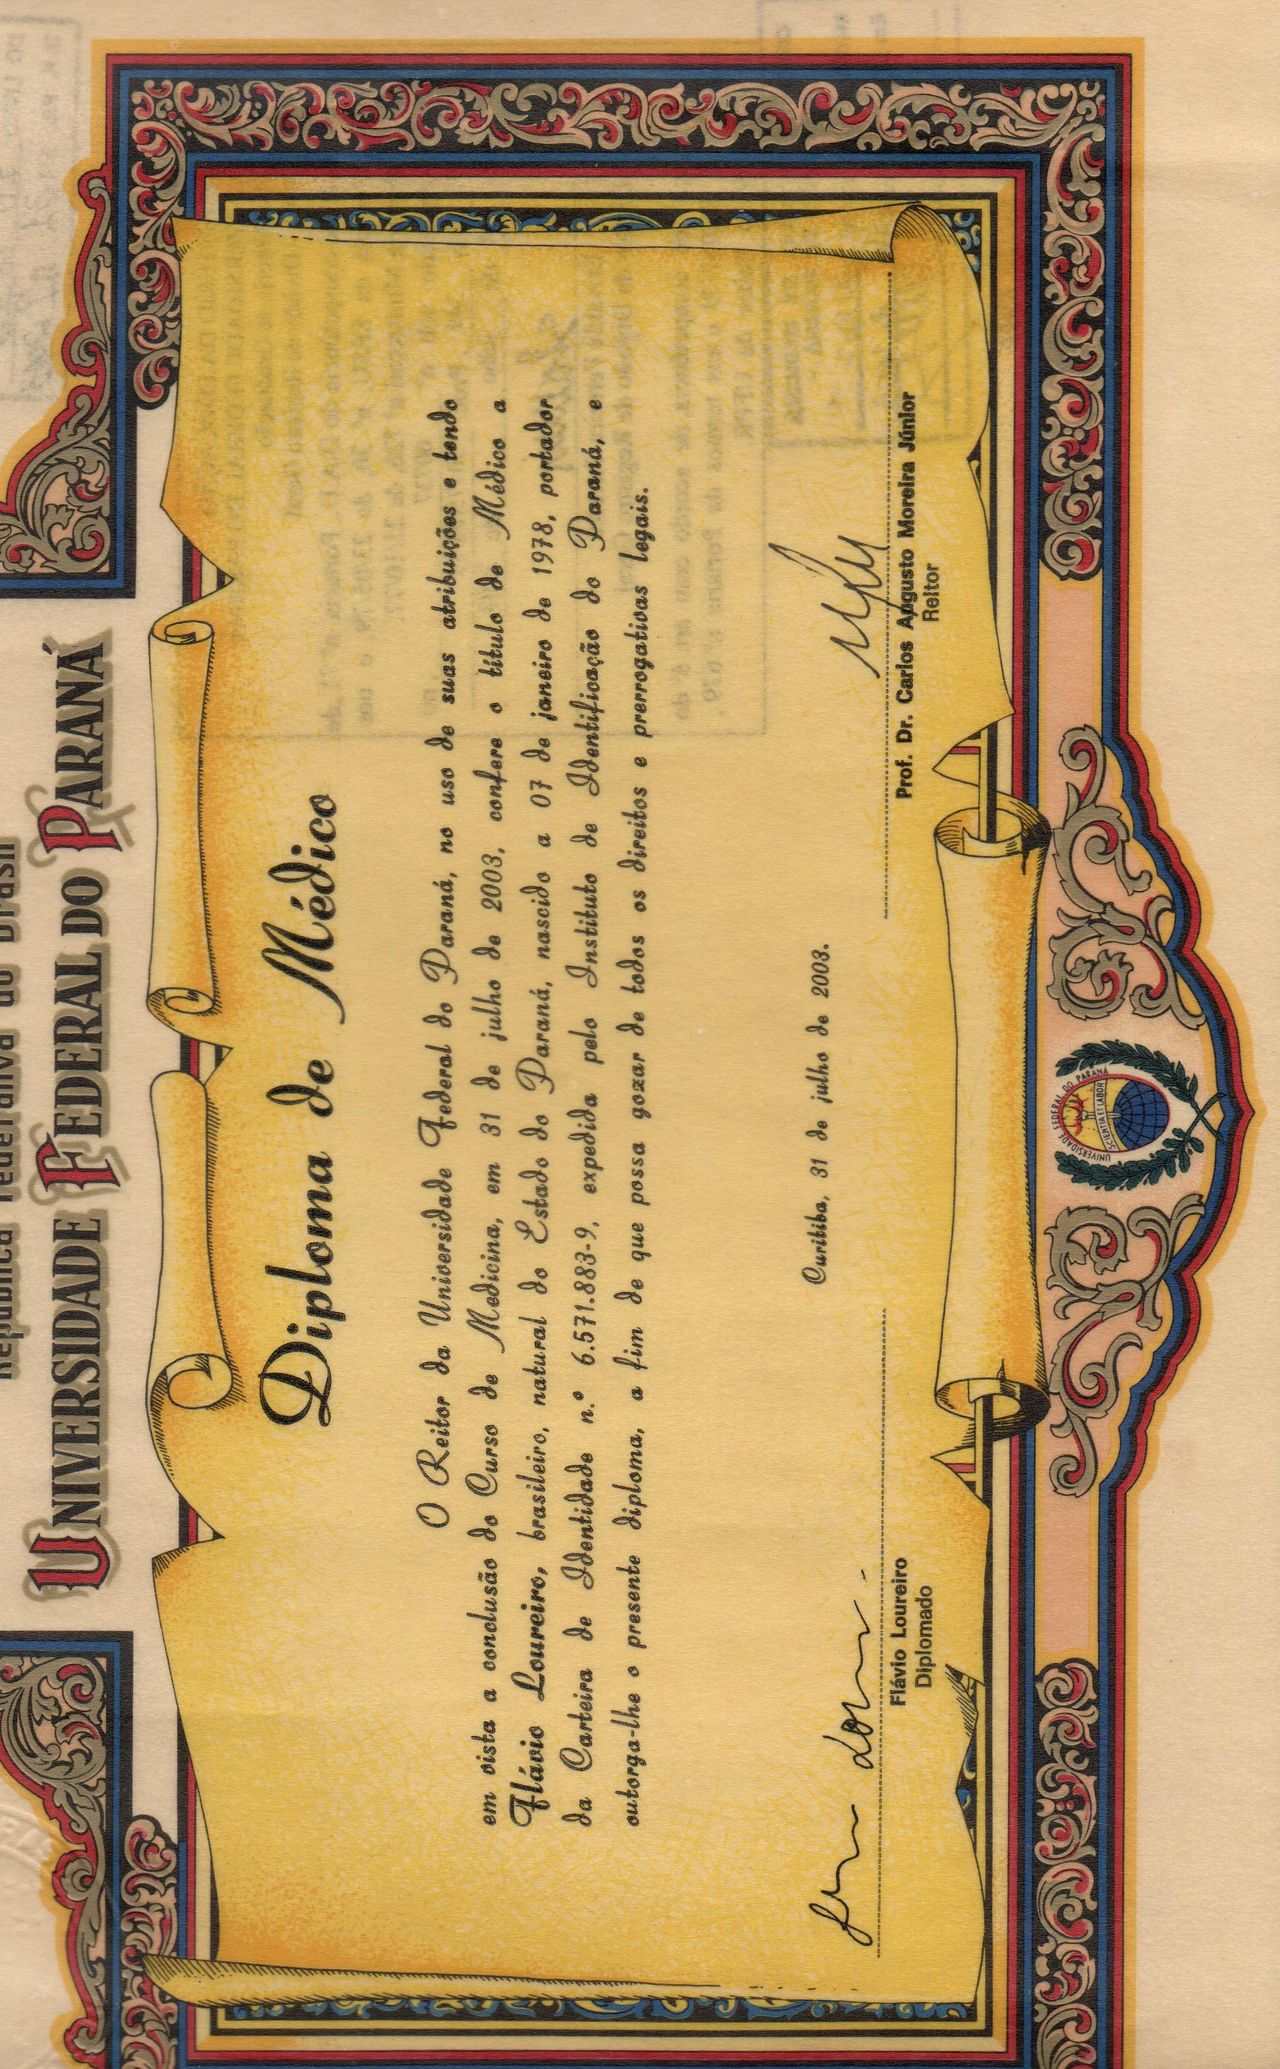 República Federativa do Brasil
UNIVERSIDADE FEDERAL DO PARANÁ
Diploma de Médico
O Reitor da Universidade Federal do Paraná, no uso de suas atribuições e tendo
em vista a conclusão do Curso de Medicina, em 31 de julho de 2003, confere o título de Médico a
Flávio Loureiro, brasileiro, natural do Estado do Paraná, nascido a 07 de janeiro de 1978, portador
da Carteira de Identidade n.º 6.571.883-9, expedida pelo Instituto de Identificação do Paraná, e
outorga-lhe o presente diploma, a fim de que possa gozar de todos os direitos e prerrogativas legais.
Curitiba, 31 de julho de 2003.
Flávio Loureiro
Diplomado
Prof. Dr. Carlos Augusto Moreira Júnior
Reitor
UNIVERSIDADE FEDERAL DO PARANÁ
SCIENTIA ET LABOR